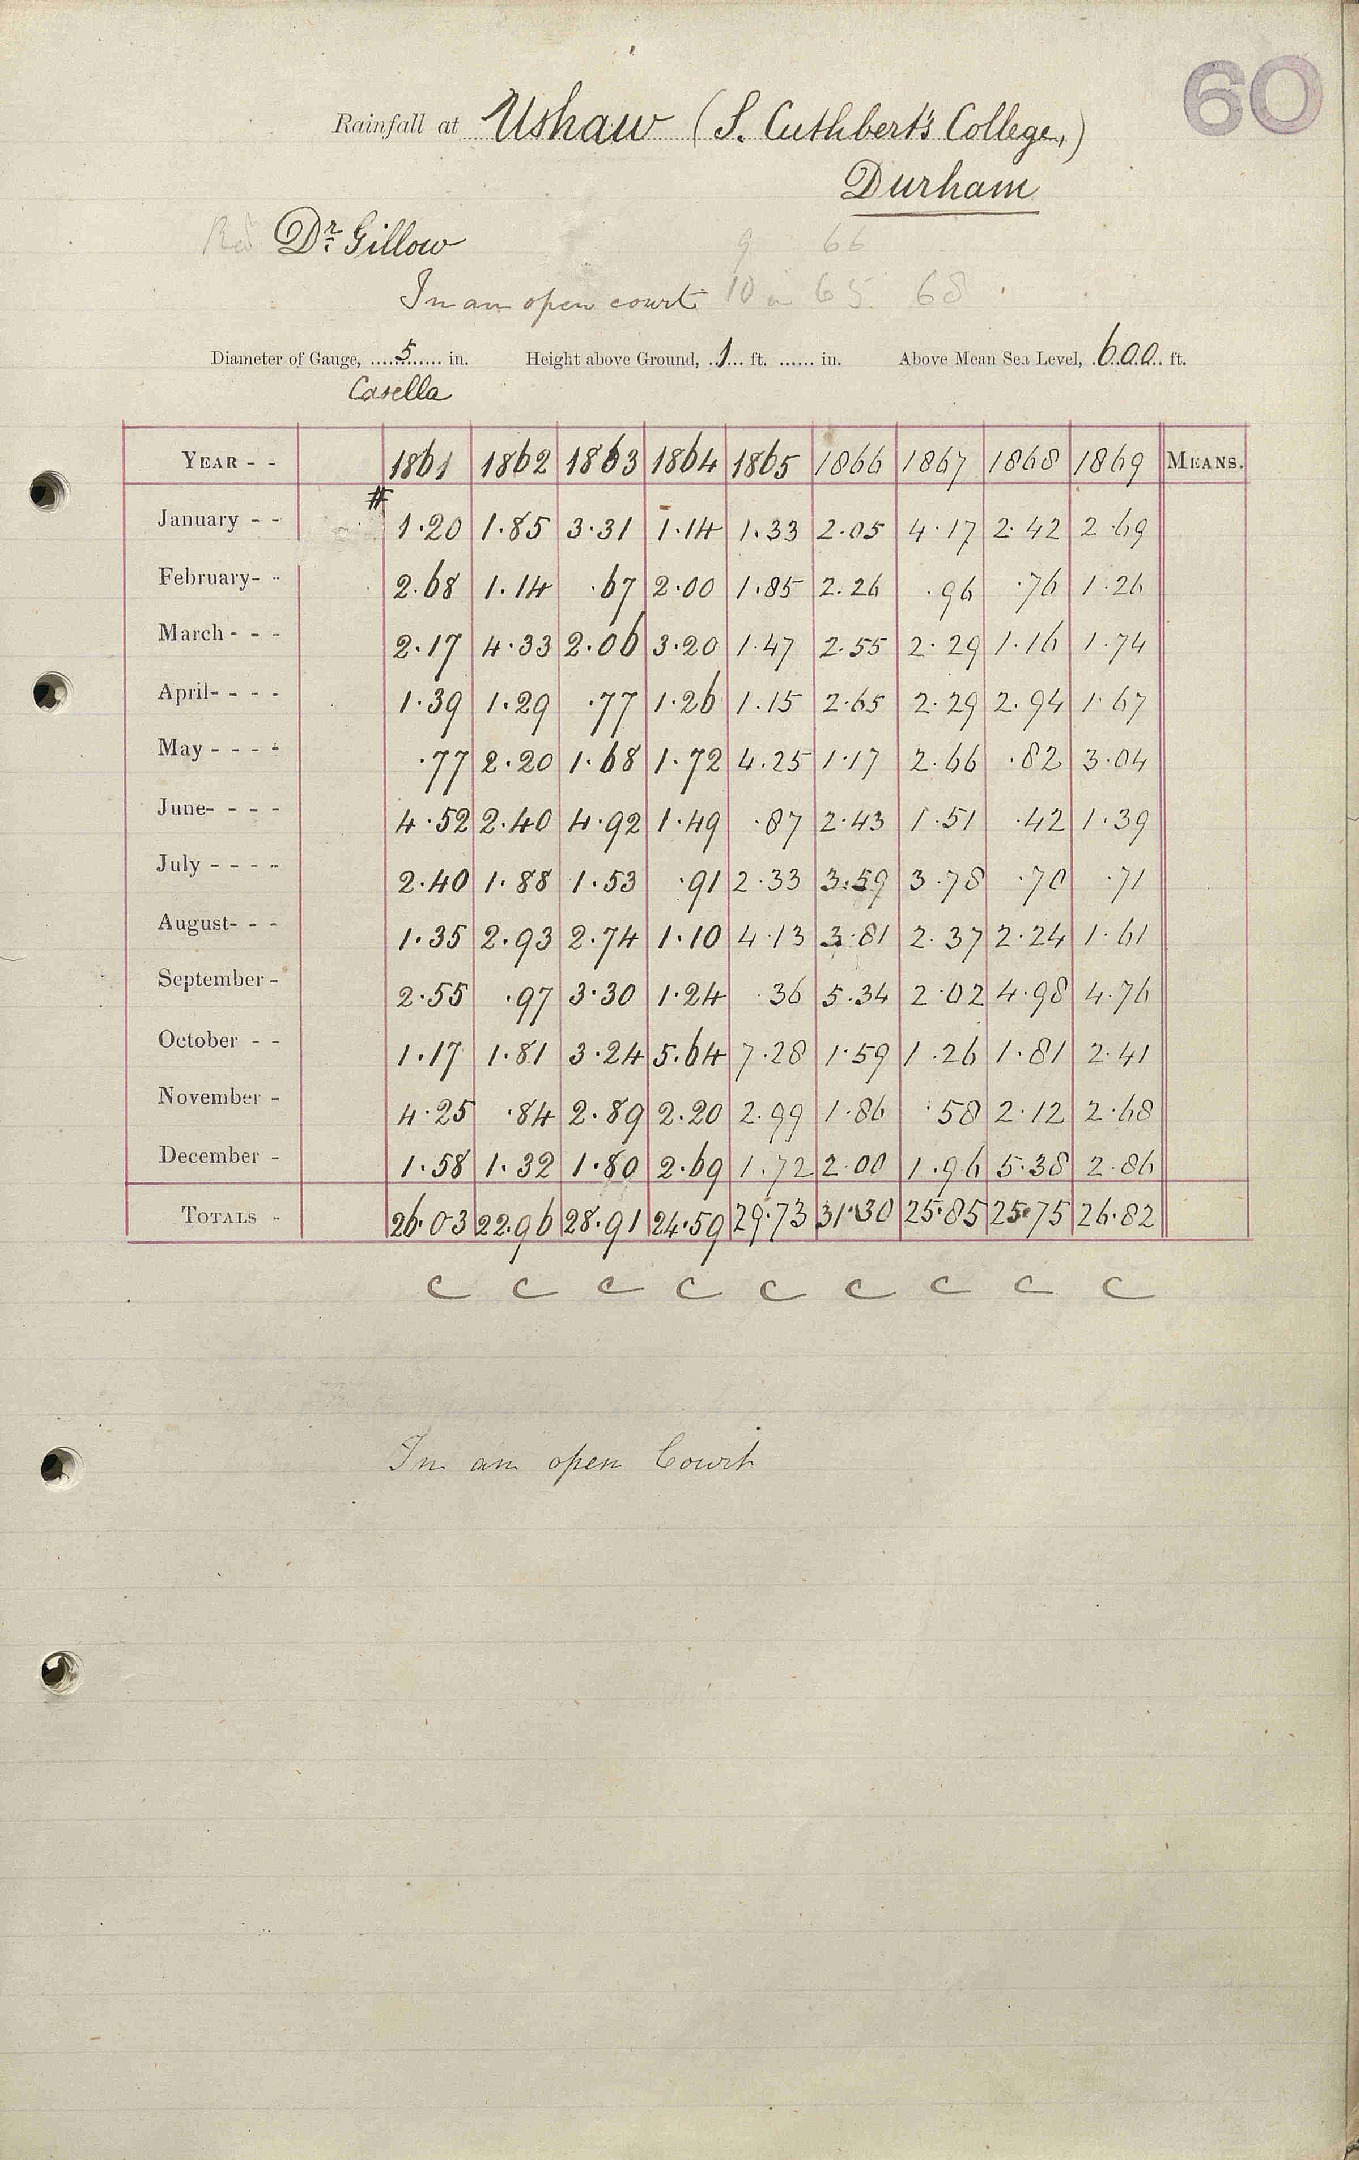 60
Rainfall at Ushaw (S. Cuthbert's College,)
Durham
Dr. Gillow
9 66
In an open court 10 in 65. 68
Diameter of Gauge, 5 in. Height above Ground, 1 ft. in. Above Mean Sea Level, 600 ft.
Casella
YEAR - - 1861 1862 1863 1864 1865 1866 1867 1868 1869 MEANS.
#
January - - 1.20 1.85 3.31 1.14 1.33 2.05 4.17 2.42 2.69
February- - 2.68 1.14 .67 2.00 1.85 2.26 .96 .76 1.26
March - - - 2.17 4.33 2.06 3.20 1.47 2.55 2.29 1.16 1.74
April- - - - 1.39 1.29 .77 1.26 1.15 2.65 2.29 2.94 1.67
May - - - - .77 2.20 1.68 1.72 4.25 1.17 2.66 .82 3.04
June- - - - 4.52 2.40 4.92 1.49 .87 2.43 1.51 .42 1.39
July - - - - 2.40 1.88 1.53 .91 2.33 3.59 3.78 .70 .71
August- - - 1.35 2.93 2.74 1.10 4.13 3.81 2.37 2.24 1.61
September - 2.55 .97 3.30 1.24 .36 5.34 2.02 4.98 4.76
October - - 1.17 1.81 3.24 5.64 7.28 1.59 1.26 1.81 2.41
November - 4.25 .84 2.89 2.20 2.99 1.86 .58 2.12 2.68
December - 1.58 1.32 1.80 2.69 1.72 2.00 1.96 5.38 2.86
TOTALS - 26.03 22.96 28.91 24.59 29.73 31.30 25.85 25.75 26.82
C C C C C C C C C
In an open Court